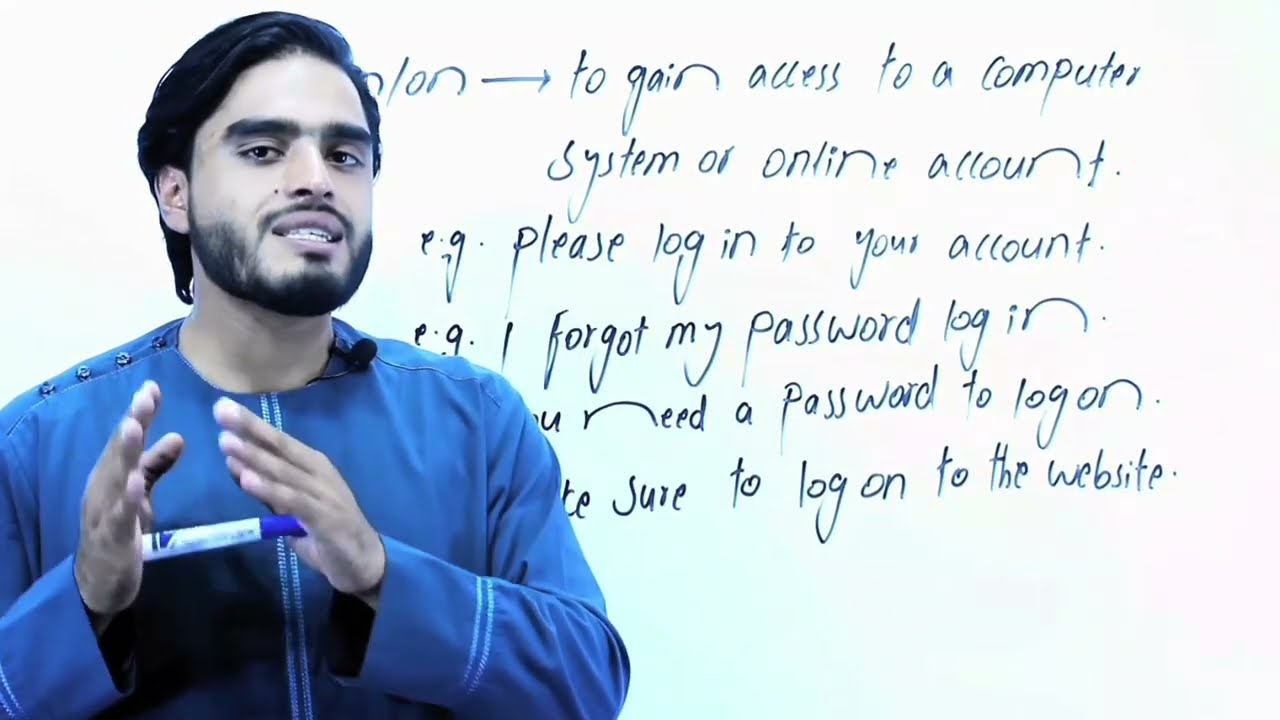 n/on → to gain access to a computer
system or online account.
e.g. please log in to your account.
e.g. I forgot my password log in.
need a password to log on.
sure to log on to the website.